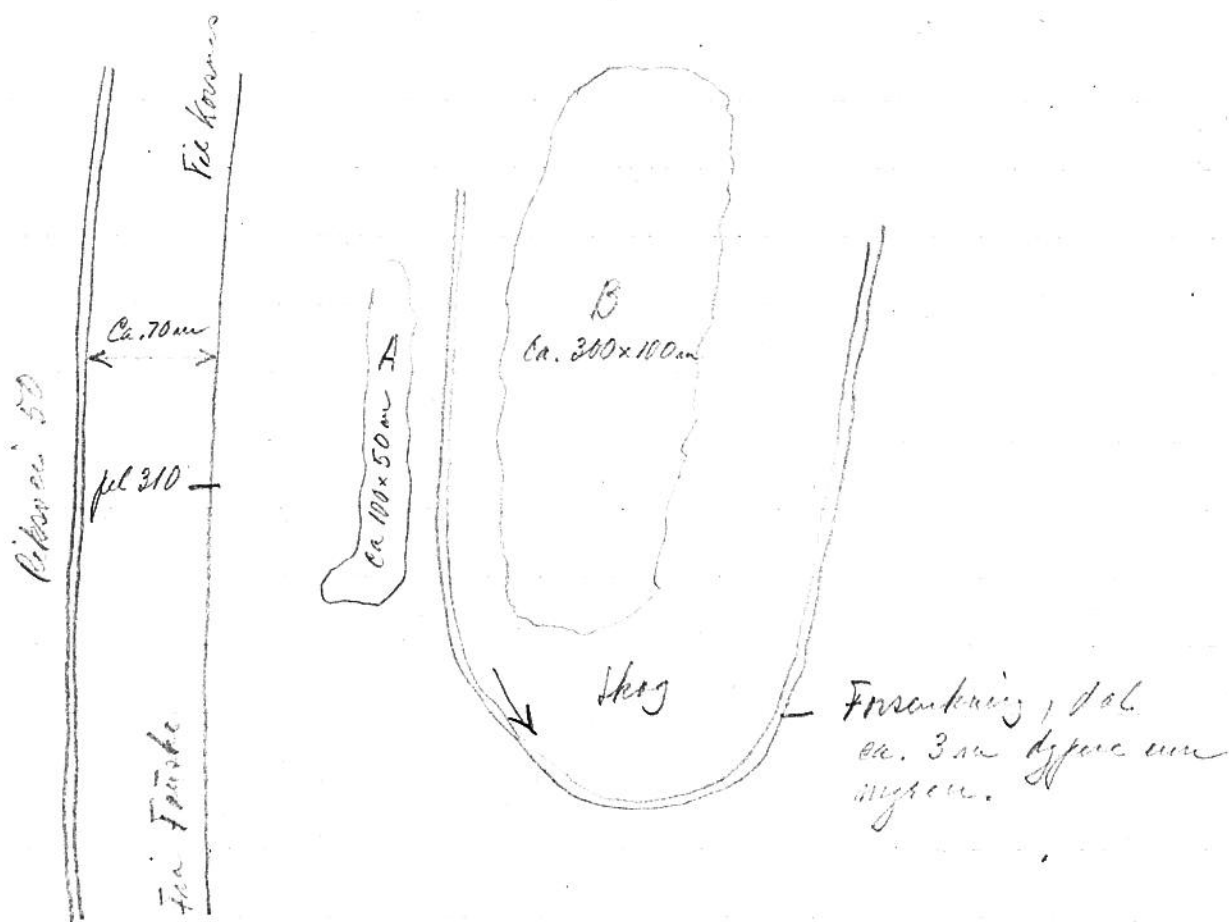 Til Korsnes
Riksvei 50
Ca. 70 m
pel 310
Fra Fauske
A
ca 100 x 50 m
B
Ca. 300 x 100 m
Skog
Forsenkning, dal
ca. 3 m dypere enn
myren.